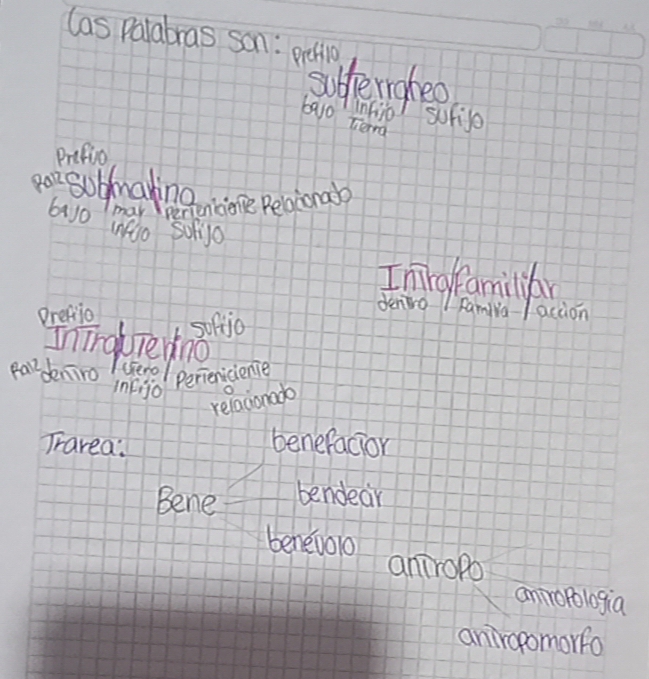 Las palabras son:
Prefijo
Sub/terra/neo
bajo infijo sufijo
Tierra
Prefijo
Raíz Sub/mar/ino
bajo mar perteniciente Relacionado
infijo sufijo
Intra/famili/ar
dentro / Familia / acción
Prefijo sufijo
Intra/uter/ino
Raíz dentro / utero / Perteniciente
infijo o
relacionado
Trarea:
benefactor
Bene
bendecir
benévolo
antropo
antropologia
antropomorfo